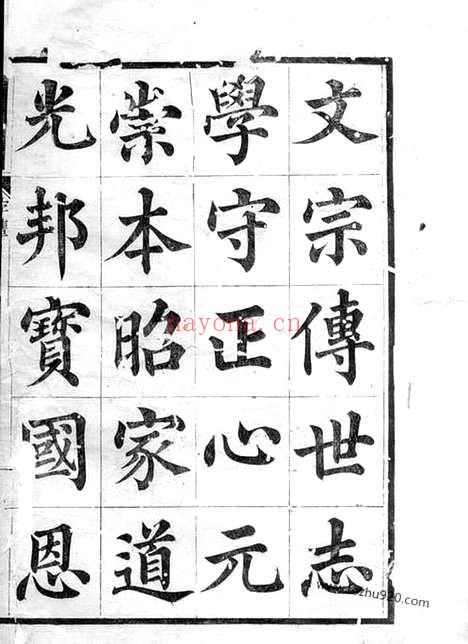 文宗傳世志
學守正心元
崇本昭家道
光邦寶國恩
nayona.cn